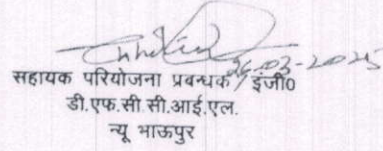 26.03-2025
सहायक परियोजना प्रबन्धक/इंजी०
डी.एफ.सी.सी.आई.एल.
न्यू भाऊपुर